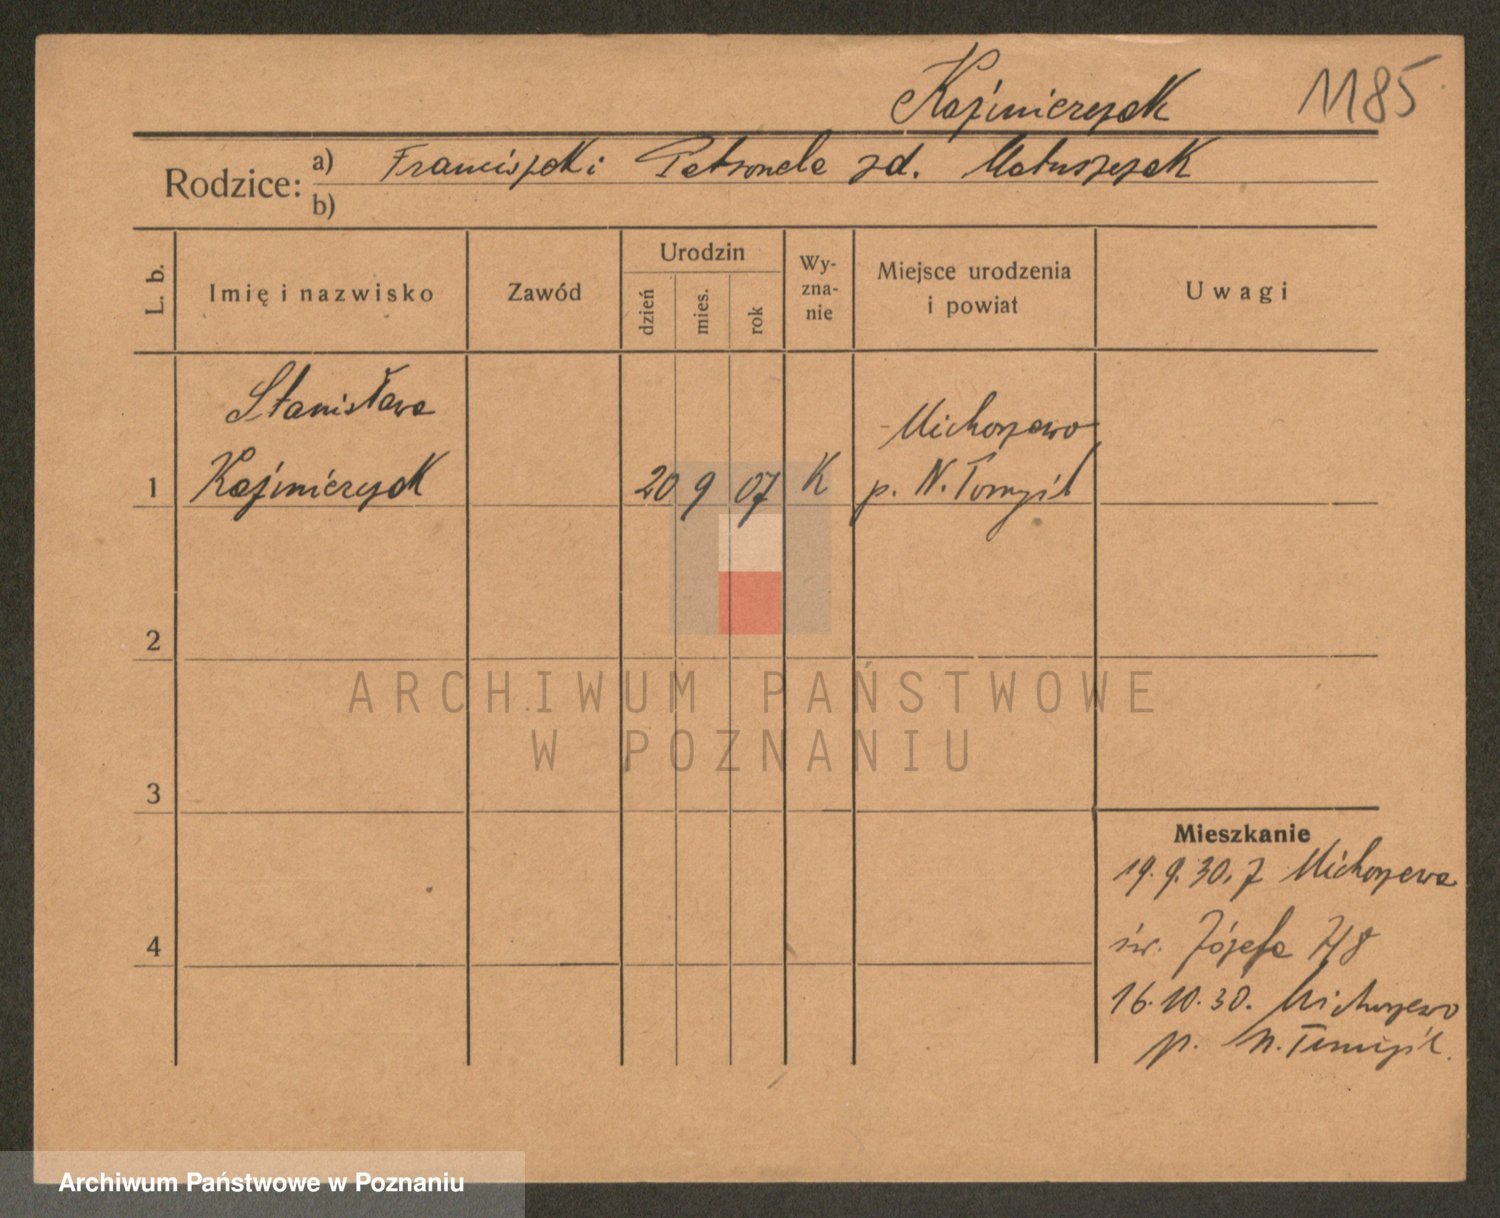 Kaźmierczak 1185
Rodzice: a) Franciszek i Petronela zd. Matuszczak
b)
L. b. Imię i nazwisko Zawód Urodzin dzień mies. rok Wy-zna-nie Miejsce urodzenia i powiat Uwagi
Stanisława Michorzewo
1 Kaźmierczak 20 9 07 K p. N. Tomyśl
2
ARCHIWUM PAŃSTWOWE
W POZNANIU
3
Mieszkanie
19.9.30. z Michorzewa
4 św. Józefa 7/8
16.10.30. Michorzewo
p. N. Tomyśl.
Archiwum Państwowe w Poznaniu